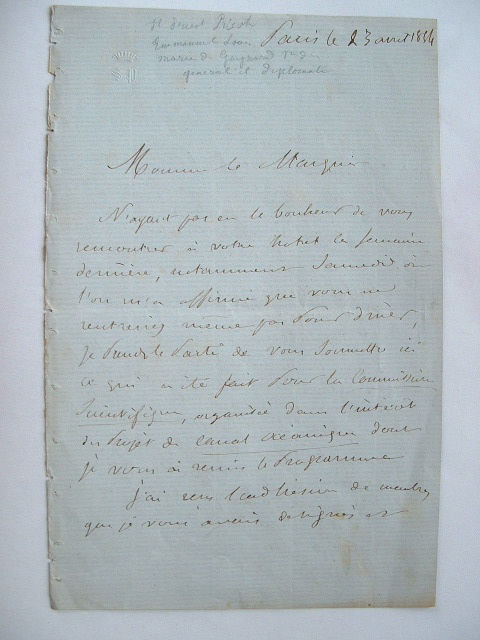 St Priest
Emmanuel Louis
Marie de Guignard
général et diplomate
SP
Paris le 23 avril 1854
Monsieur le Marquis
N'ayant pas eu le bonheur de vous
rencontrer à votre hotel la semaine
dernière, notamment Samedi où
l'on m'a affirmé que vous ne
rentreriez même pas pour diner,
je prends le parti de vous soumettre ici
ce qui a été fait pour la Commission
Scientifique, organisée dans l'intérêt
du Projet de Canal océanique dont
je vous ai remis le Programme
J'ai reçu l'adhésion de membres
que je vous avais désignés et